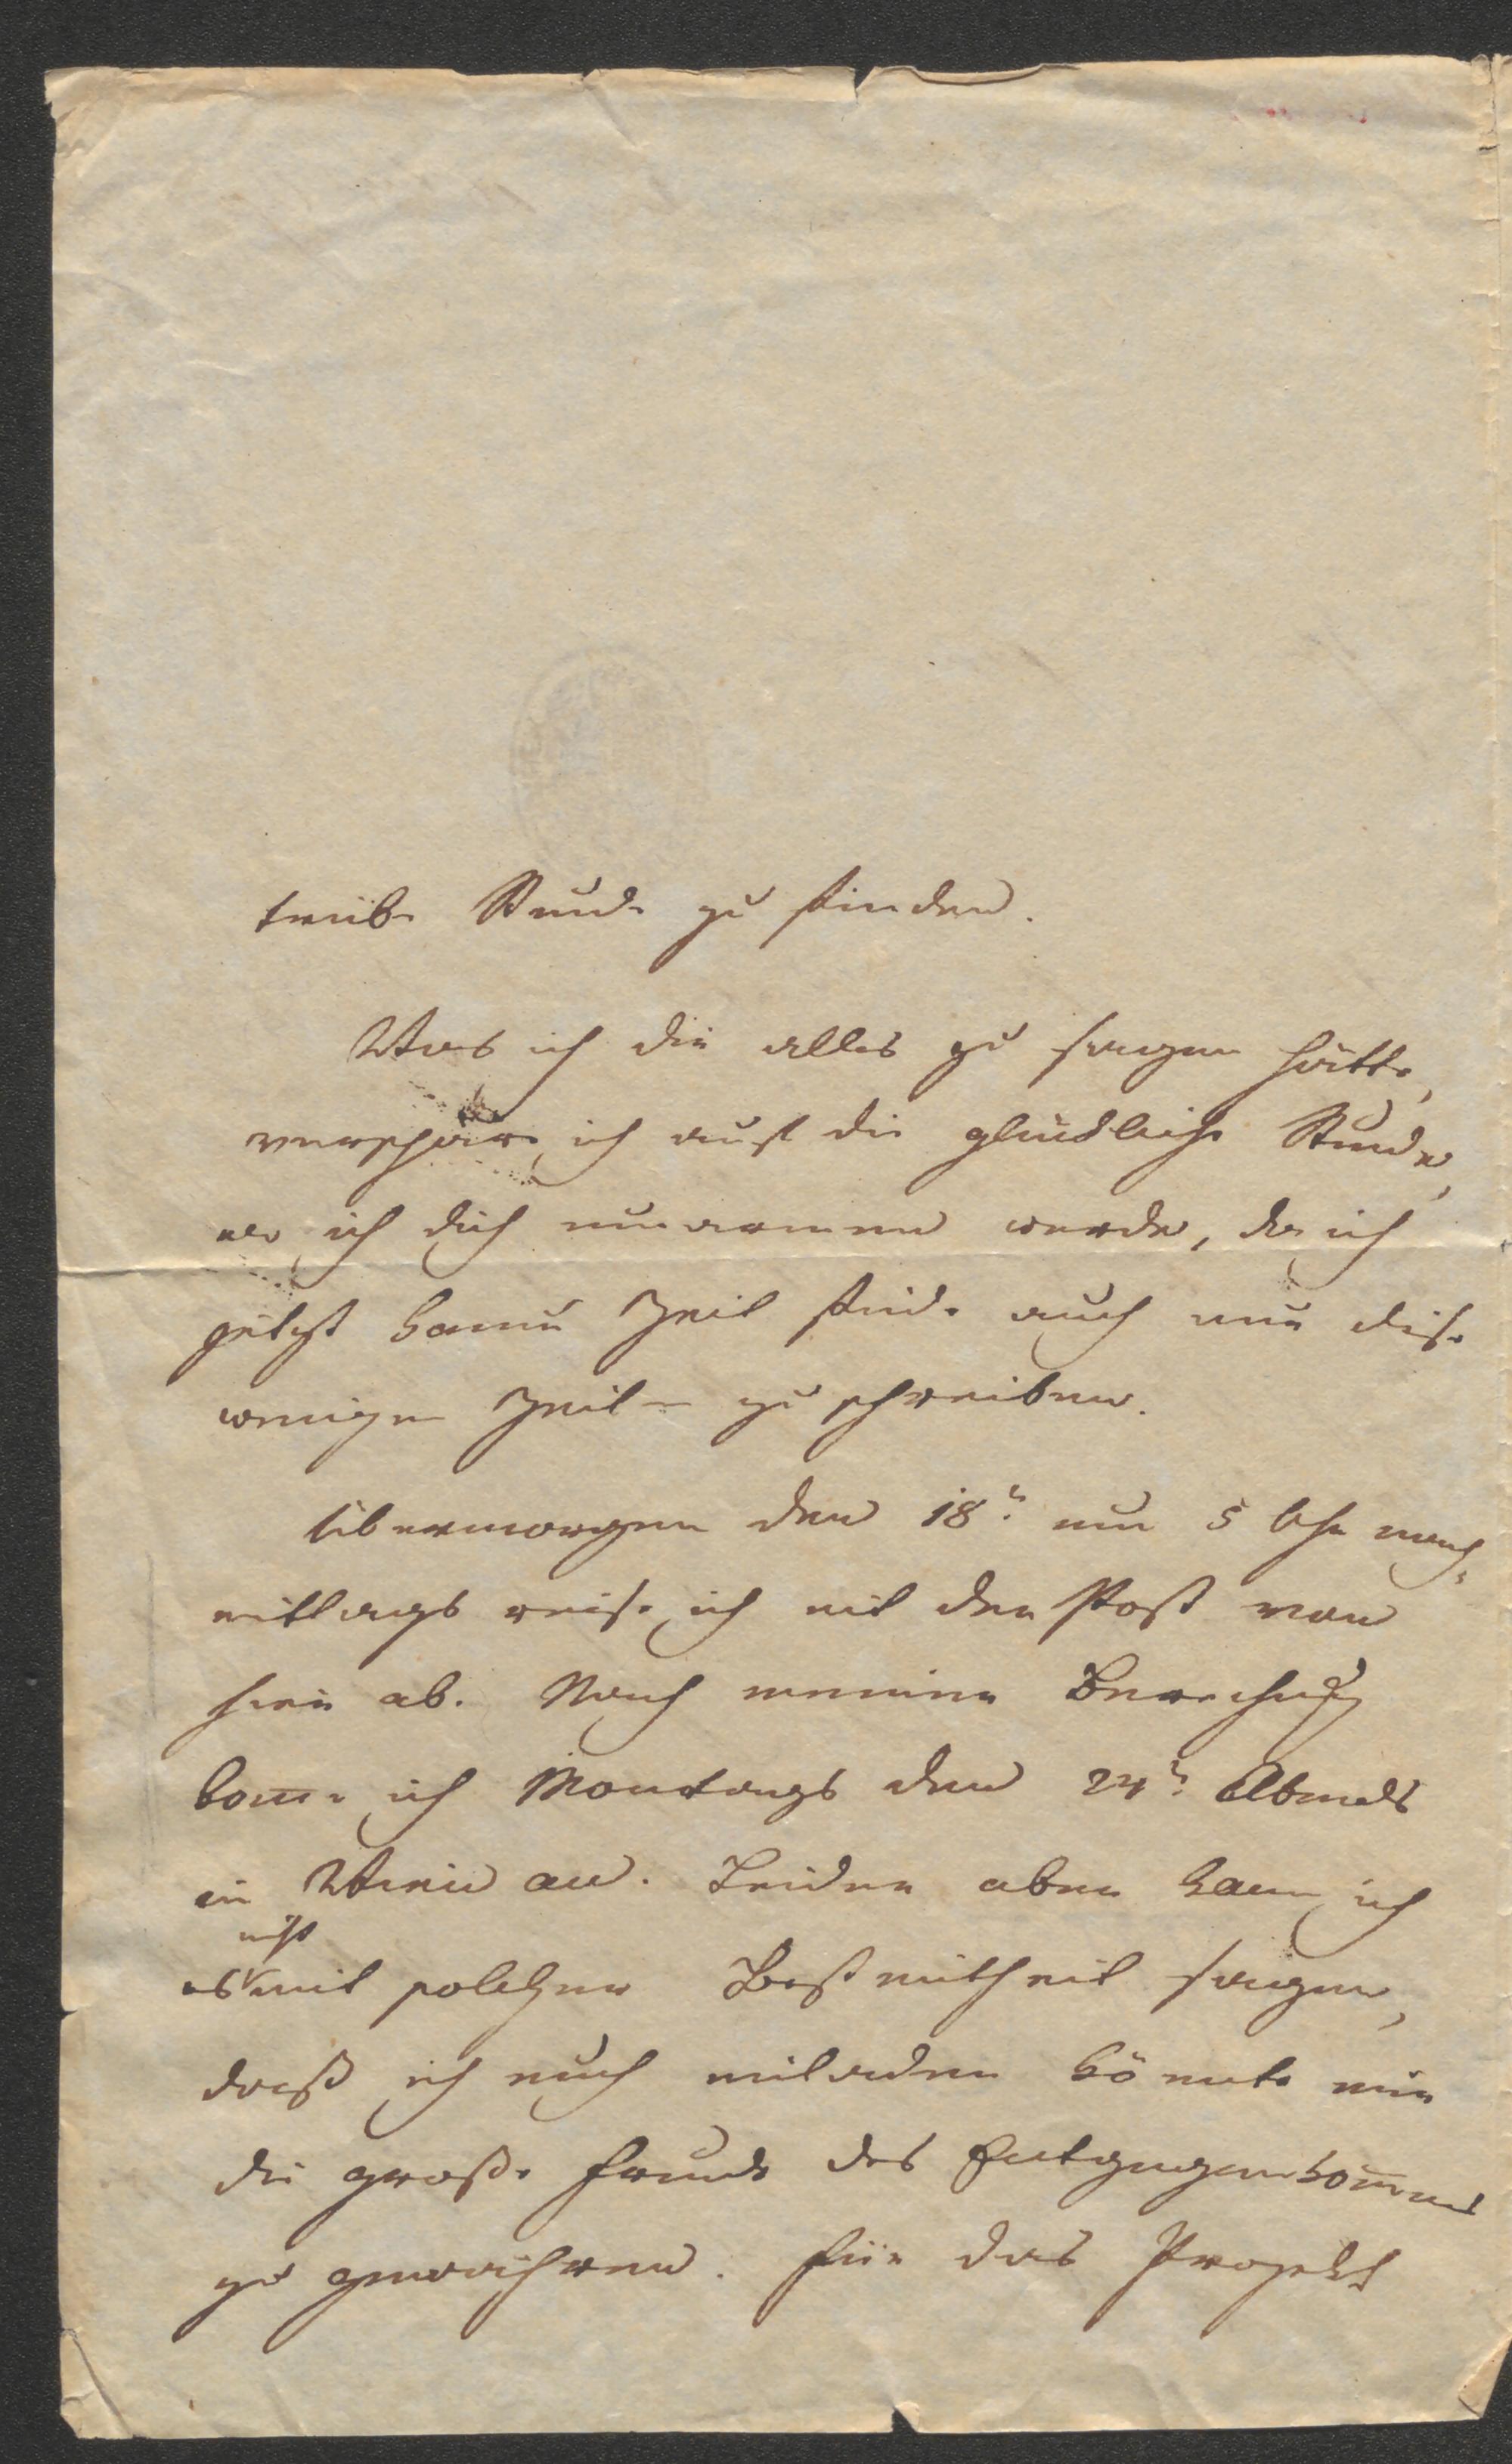 trübe Stunde zu finden.
Was ich dir alles zu sagen hätte,
verspare ich auf die glückliche Stunde,
wo ich dich umarmen werde, da ich
jetzt kaum Zeit finde auch nur diese
wenigen Zeilen zu schreiben.
Übermorgen den 18t. um 5 Uhr nach,
mittags reise ich mit der Post von
hier ab. Nach meiner Berechnung
kome ich Montags den 24t. Abends
in Wien an. Leider aber kann ich
nicht
es mit solcher Bestimtheit sagen,
daß ich euch einladen könnte mir
die große Freude des Entgegenkomens
zu gewähren. Für das Projekt